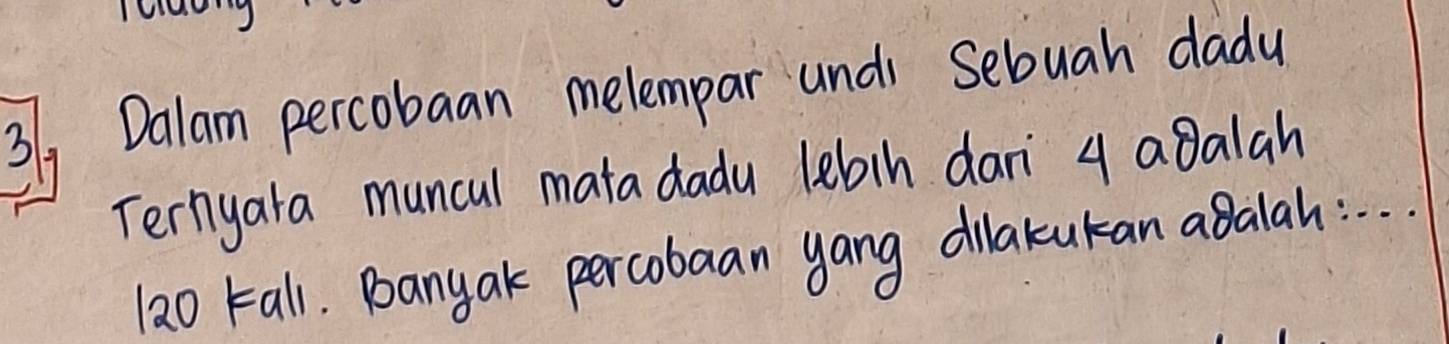 3. Dalam percobaan melempar undi sebuah dadu
Ternyata muncul mata dadu lebih dari 4 adalah
120 kali. Banyak percobaan yang dilakukan adalah:....